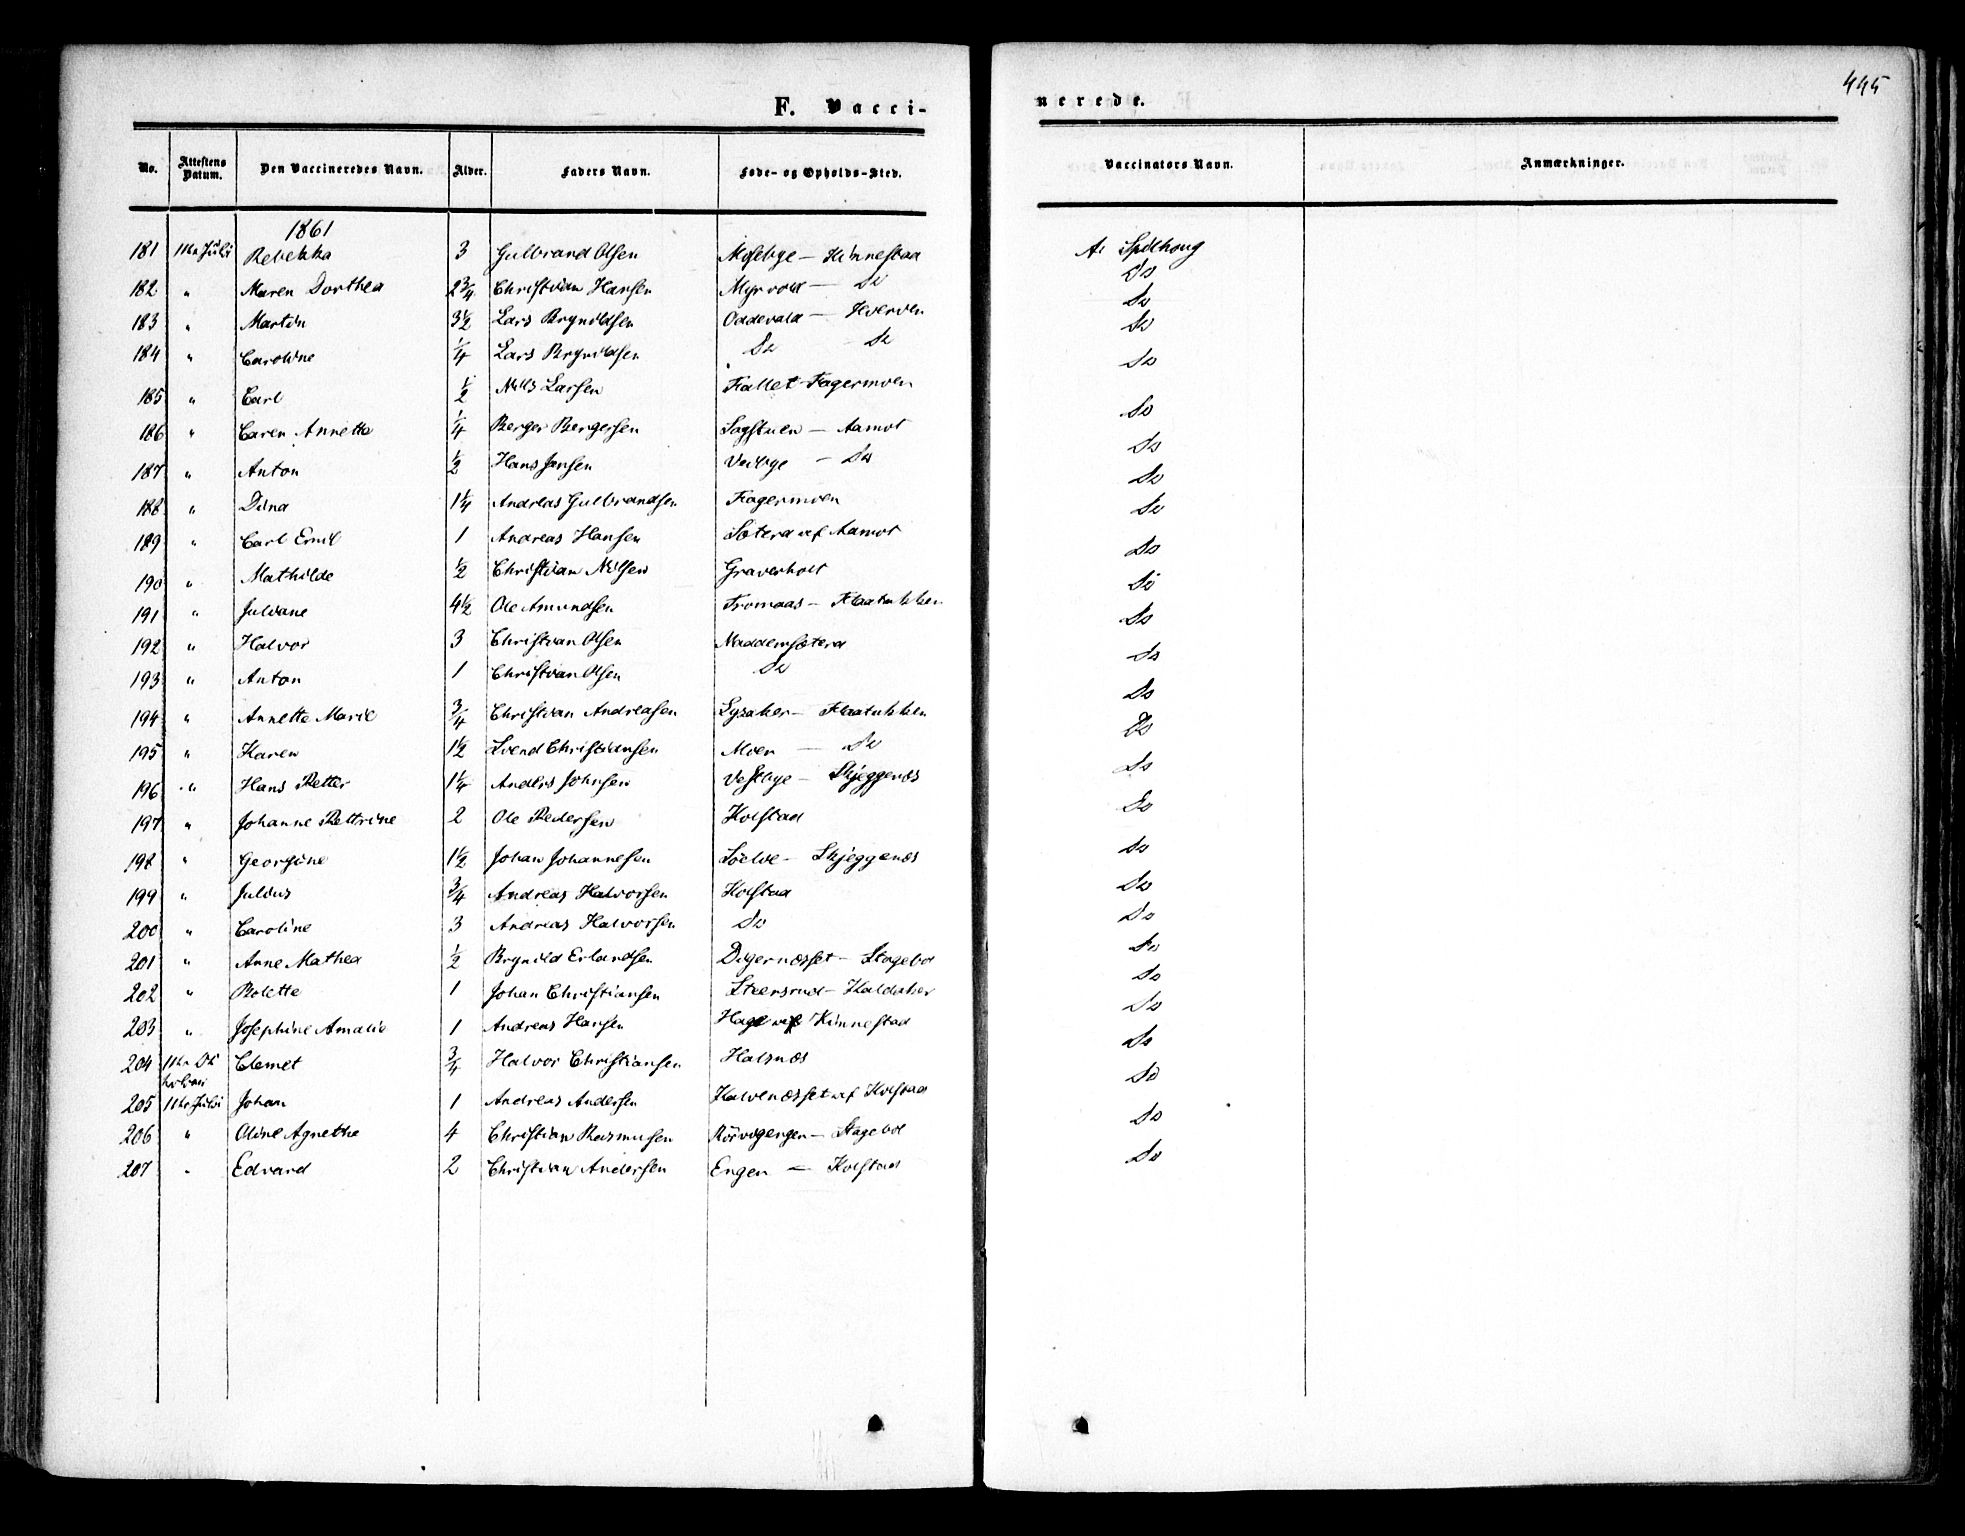 445
F. Vacci-
nerede.
No. Attestens Datum. Den Vaccineredes Navn. Alder. Faders Navn. Føde- og Opholds-Sted. Vaccinators Navn. Anmærkninger.
1861
181 11te Juli Rebekka 3 Gulbrand Olsen Moseby - Kinnestad A. Spilhoug
182 " Maren Dorthea 2 3/4 Christian Hansen Myrvold - Do Do
183 " Martin 3 1/2 Lars Brynildsen Oddevald - Hverven Do
184 " Caroline 1/4 Lars Brynildsen Do - Do Do
185 " Carl 1/2 Nils Larsen Fallet - Fagermoen Do
186 " Caren Annette 1/4 Berger Bergersen Sagstuen - Aamot Do
187 " Anton 1/2 Hans Jensen Vedbye - Do Do
188 " Dina 1 1/4 Andreas Gulbrandsen Fagermoen Do
189 " Carl Emil 1 Andreas Hansen Sætera af Aamot Do
190 " Mathilde 1/2 Christian Nilsen Graverholt Do
191 " Juliane 4 1/2 Ole Amundsen Fromaas - Flaatukken Do
192 " Halvor 3 Christian Olsen Naddemsætera Do
193 " Anton 1 Christian Olsen Do Do
194 " Annette Marie 3/4 Christian Andreasen Lysaker - Flaatukken Do
195 " Karen 1 1/2 Svend Christiansen Moen - Do Do
196 " Hans Petter 1 1/4 Anders Johnsen Vestbye - Skjeggenæs Do
197 " Johanne Pettrine 2 Ole Pedersen Kolstad Do
198 " Georgine 1 1/2 Johan Johannesen - Skjeggenæs Do
199 " Julius 3/4 Andreas Halvorsen Kolstad Do
200 " Caroline 3 Andreas Halvorsen Do Do
201 " Anne Mathea 1/2 Brynild Erlandsen Digernæsset - Stagebol Do
202 " Bolette 1 Johan Christiansen Steersrud - Kaldaker Do
203 " Josephine Amalie 1 Andreas Hansen af Kinnestad Do
204 11te Ok tober Clemet 3/4 Halvor Christiansen Halsnæs Do
205 11te Juli Johan 1 Andreas Andersen Kalvenæsset af Kolstad Do
206 " Oline Agnethe 4 Christian Rasmusen Rörvigengen - Stagebol Do
207 " Edvard 2 Christian Andersen Engen - Kolstad Do